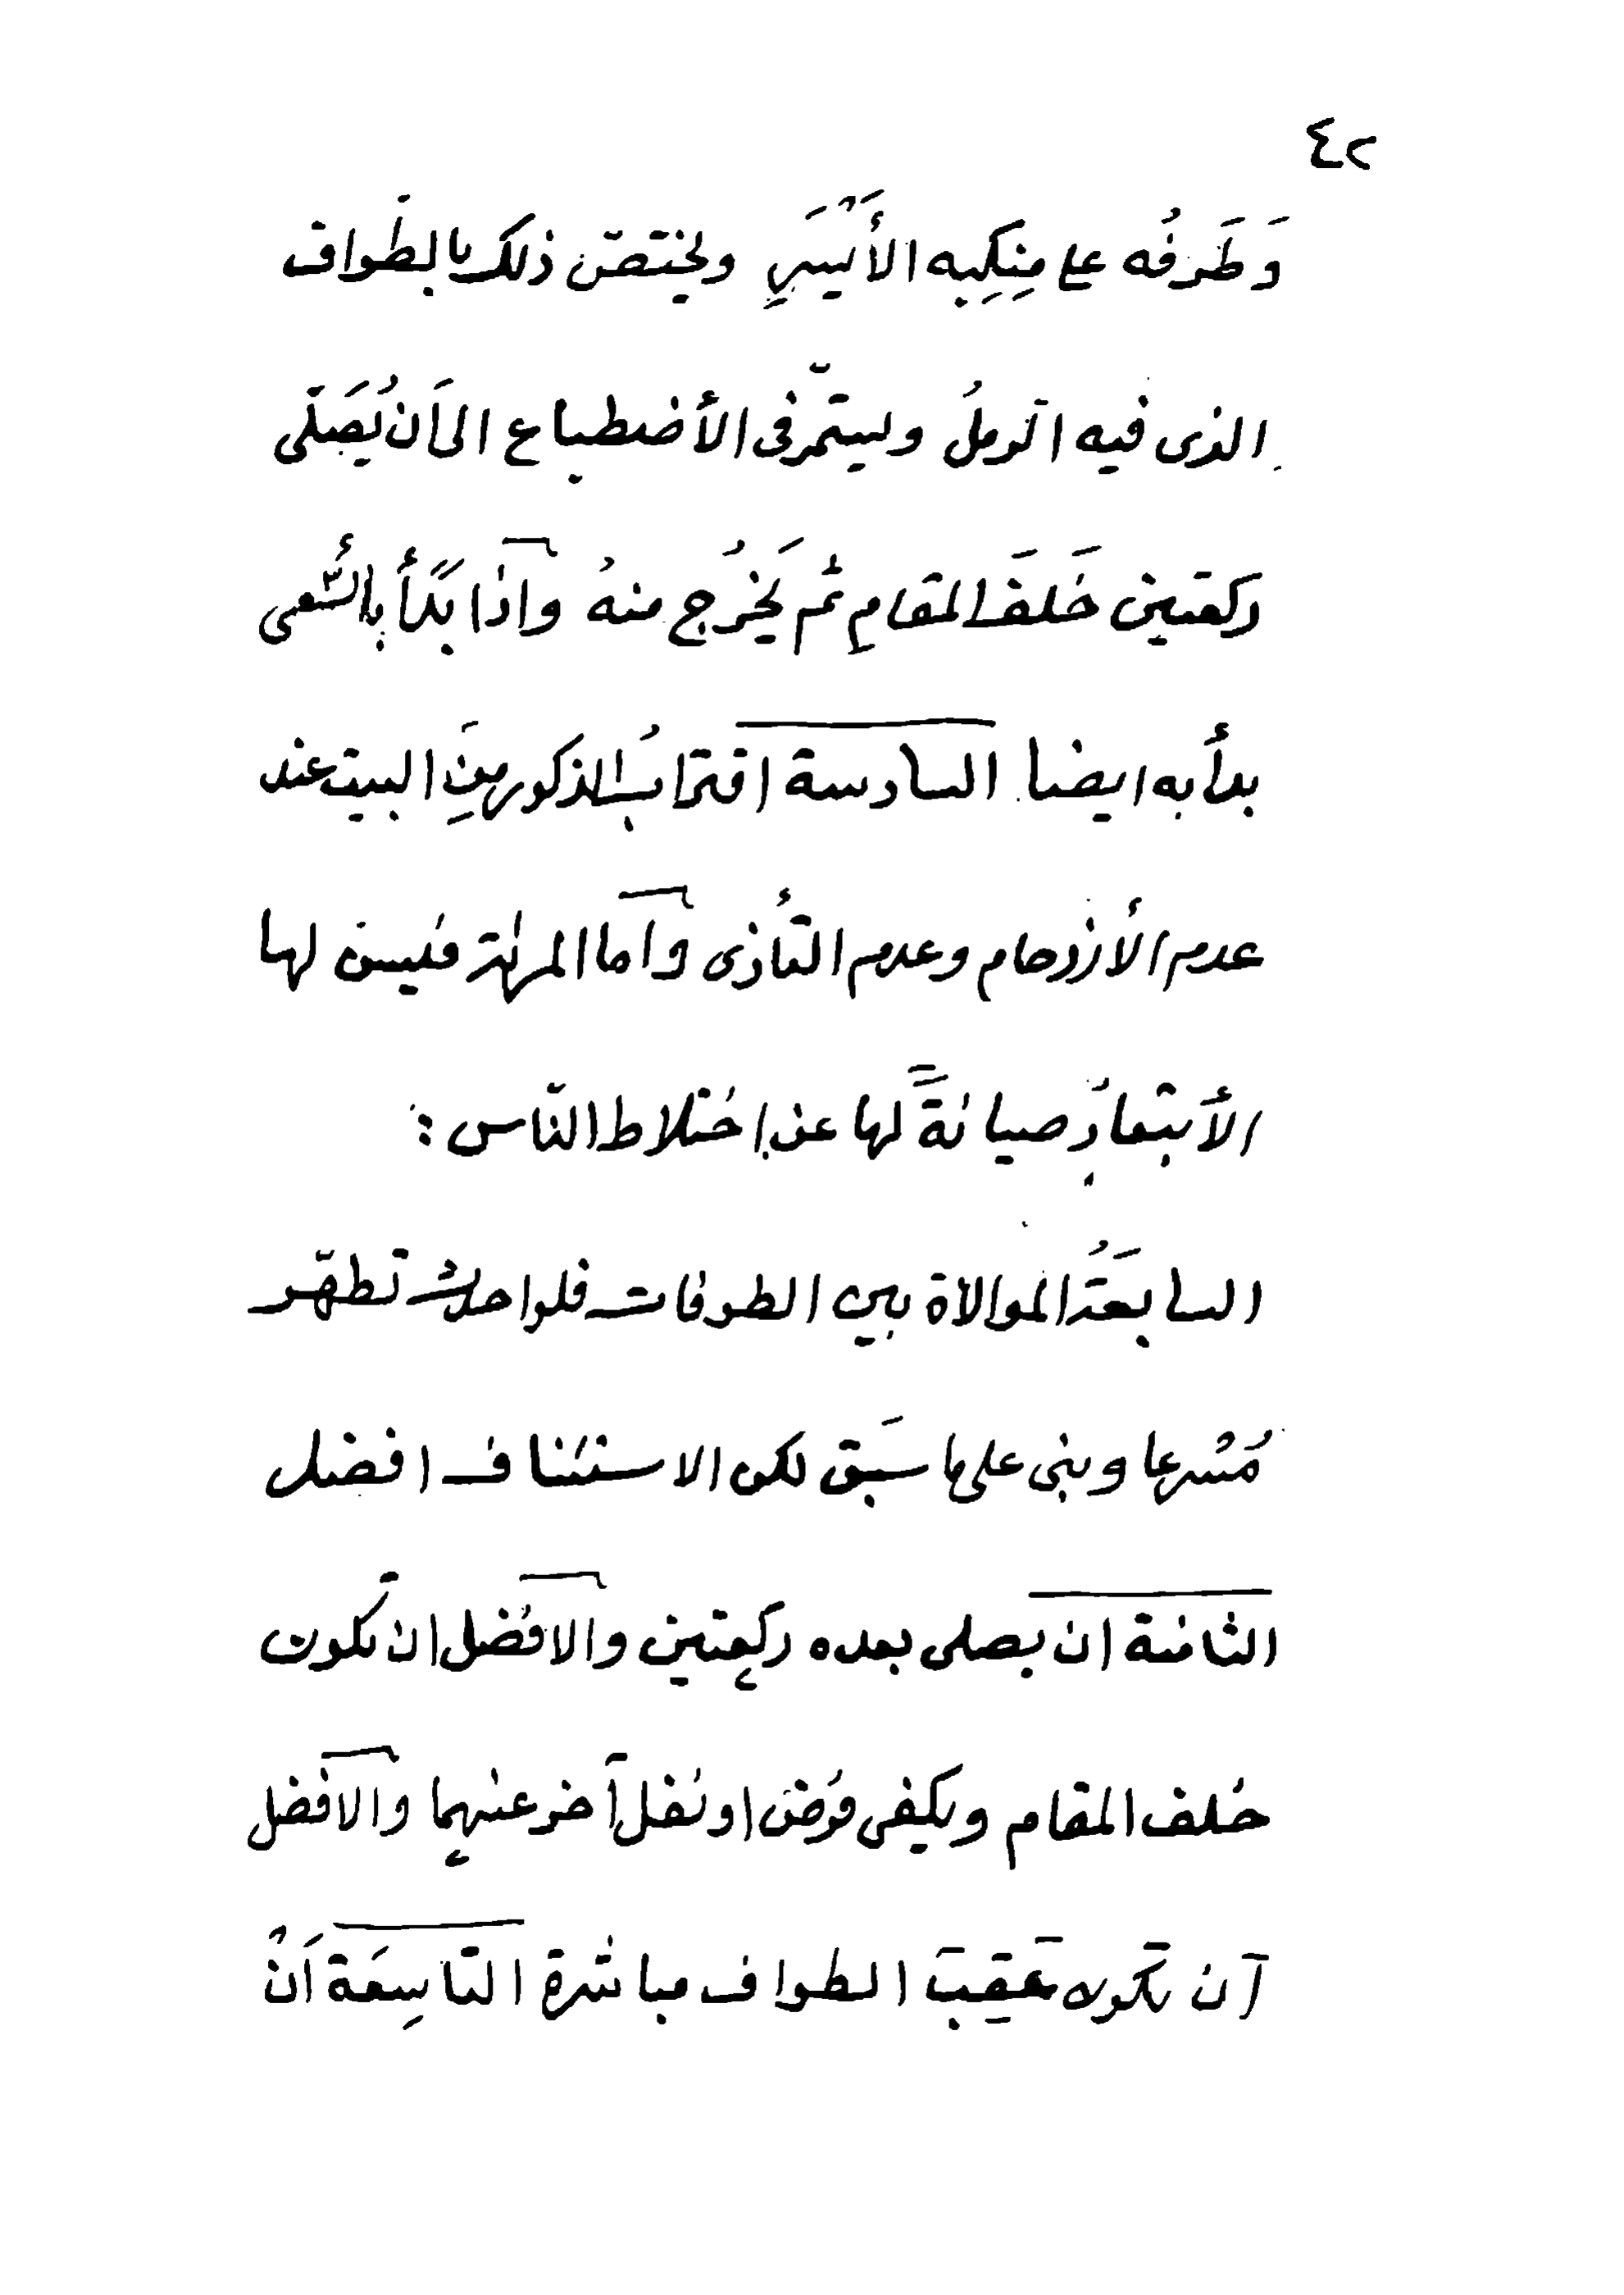 ٤٢
وَطَرَفُه علے مِنكِبِه الأَيْسَرِ ويختصّ ذلك بالطَواف
الذى فيه الَرملُ وليستمّر فى الأضطباع الى اَن يُصَلّى
ركعتين خَلفَ المقامِ ثُم يَخرُج منهُ واذا بَدَأَ بالسَّعى
بدأ به ايضا السادسة اقترابُ الذكور مِنَ البيت عند
عدم الأزدحام وعدم التأذى واَما المرئة فليس لها
الأبتعادُ صيانةً لها عن إختلاط النّاس :
السابعَةُ الموالاة بين الطوفات فلو احدث تطهّر
مُسْرعا وبنى على ما سَبق لكن الاستئناف افضل
الثامنة ان يصلى بعده ركعتين والافضل ان تَكون
خلف المقام ويكفى فرض او نفل آخر عنهما والافضل
اَن تكون عَقِبَ الطواف مباشرة التاسِعَة اَنْ